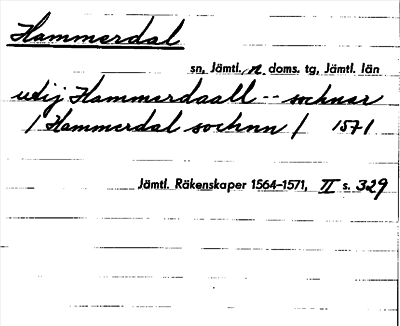 Hammerdal
sn, Jämtl. n doms. tg, Jämtl. län
utij Hammerdaall -- sochnar
/ Hammerdal sochnn / 1571
Jämtl. Räkenskaper 1564-1571, II s. 329